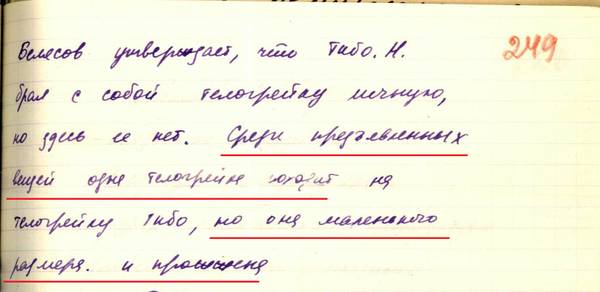 Белесов утверждает, что Тибо. Н. 249
брал с собой телогрейку личную,
но здесь ее нет. Среди предъявленных
вещей одна телогрейка походит на
телогрейку Тибо, но она маленького
размера. и